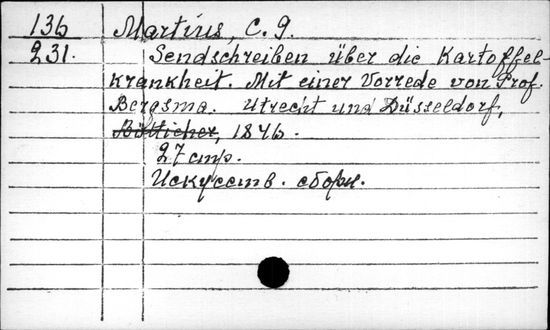 136 Martius, C. g.
231. Sendschreiben über die Kartoffel-
krankheit. Mit einer Vorrede von Prof.
Bergsma. Utrecht und Düsseldorf,
Bötticher, 1846.
27 стр.
Искусств. сборн.